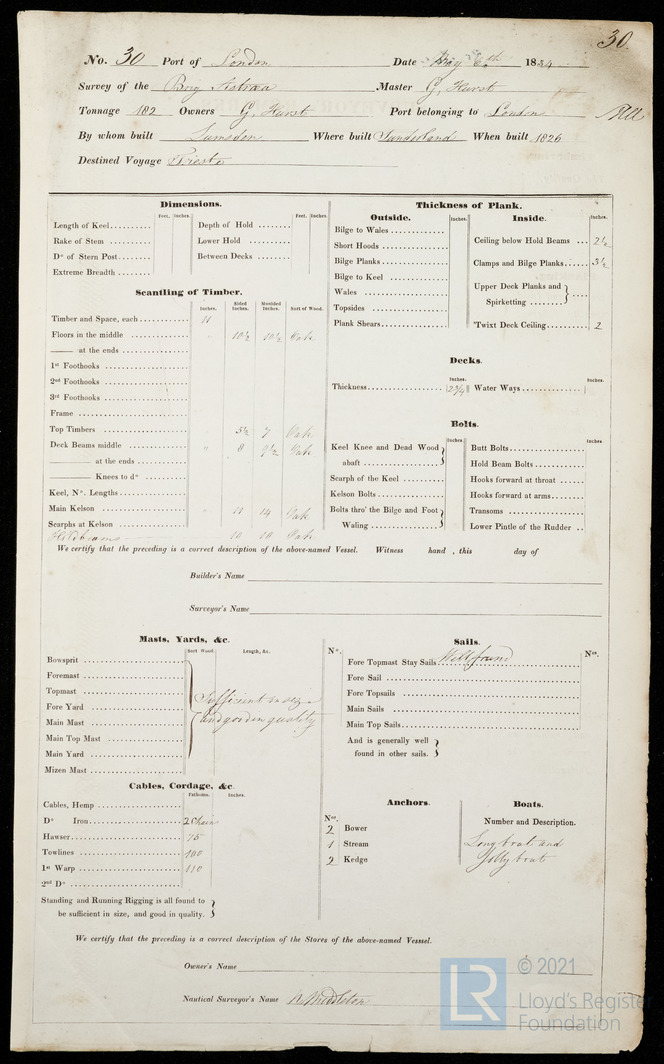 30.
No. 30 Port of London Date May 6th 1834
Survey of the Brig Astraea Master G. Hurst
Tonnage 182 Owners G. Hurst Port belonging to London
By whom built Lumsden Where built Sunderland When built 1826
Destined Voyage Trieste
Dimensions.
Feet. Inches. Feet. Inches.
Length of Keel.......... Depth of Hold ........
Rake of Stem .......... Lower Hold .........
Do of Stern Post ........ Between Decks ........
Extreme Breadth ........
Scantling of Timber.
Inches. Sided Inches. Moulded Inches. Sort of Wood.
Timber and Space, each ........... 11
Floors in the middle ............. 10½ 10½ Oak
—— at the ends ................
1st Foothooks ....................
2nd Foothooks ....................
3rd Foothooks ....................
Frame ............................
Top Timbers ...................... 5½ 7 Oak
Deck Beams middle ................ " 8 9½ Oak
—— at the ends ............
—— Knees to do ............
Keel, No. Lengths.................
Main Kelson ...................... 14 Oak
Scarphs at Kelson ................
Hold beams 10 10 Oak
Thickness of Plank.
Outside.
Inches.
Bilge to Wales .............
Short Hoods ................
Bilge Planks ...............
Bilge to Keel ..............
Wales ......................
Topsides ...................
Plank Shears................
Inside.
Inches.
Ceiling below Hold Beams ... 2½
Clamps and Bilge Planks...... 3½
Upper Deck Planks and
Spirketting ..............
'Twixt Deck Ceiling.......... 2
Decks.
Inches. Inches.
Thickness.................. 2¾ Water Ways ..............
Bolts.
Inches Inches
Keel Knee and Dead Wood
abaft ....................
Scarph of the Keel .........
Kelson Bolts................
Bolts thro' the Bilge and Foot
Waling ...................
Butt Bolts..................
Hold Beam Bolts ............
Hooks forward at throat ....
Hooks forward at arms.......
Transoms ...................
Lower Pintle of the Rudder ..
We certify that the preceding is a correct description of the above-named Vessel. Witness hand , this day of
Builder's Name
Surveyor's Name
Masts, Yards, &c.
Sort Wood. Length, &c.
Bowsprit ....................
Foremast ....................
Topmast .....................
Fore Yard ...................
Main Mast ...................
Main Top Mast ...............
Main Yard ...................
Mizen Mast ..................
Sufficient in size
and good in quality
Sails.
No. Nos.
Fore Topmast Stay Sails Well found
Fore Sail ...................
Fore Topsails ...............
Main Sails ..................
Main Top Sails...............
And is generally well
found in other sails.
Cables, Cordage, &c.
Fathoms. Inches.
Cables, Hemp ................
Do Iron................. 2 Chains
Hawser....................... 75
Towlines .................... 100
1st Warp .................... 110
2nd Do ......................
Standing and Running Rigging is all found to
be sufficient in size, and good in quality.
Anchors.
Nos.
2 Bower
1 Stream
2 Kedge
Boats.
Number and Description.
Long boat and
Jolly boat
We certify that the preceding is a correct description of the Stores of the above-named Vessel.
Owner's Name
Nautical Surveyor's Name Middleton
LR © 2021
Lloyd's Register
Foundation